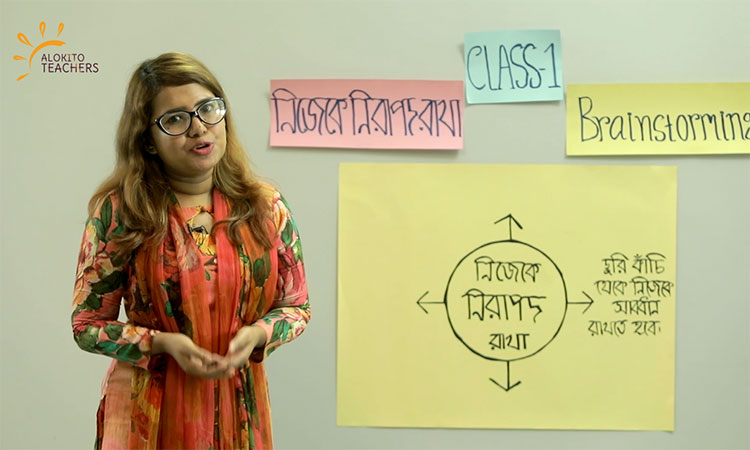 ALOKITO
TEACHERS
CLASS-1
নিজেকে নিরাপদ রাখা
Brainstorming
নিজেকে
নিরাপদ
রাখা
ছুরি বঁটি
থেকে নিজেকে
সাবধান
রাখতে হবে